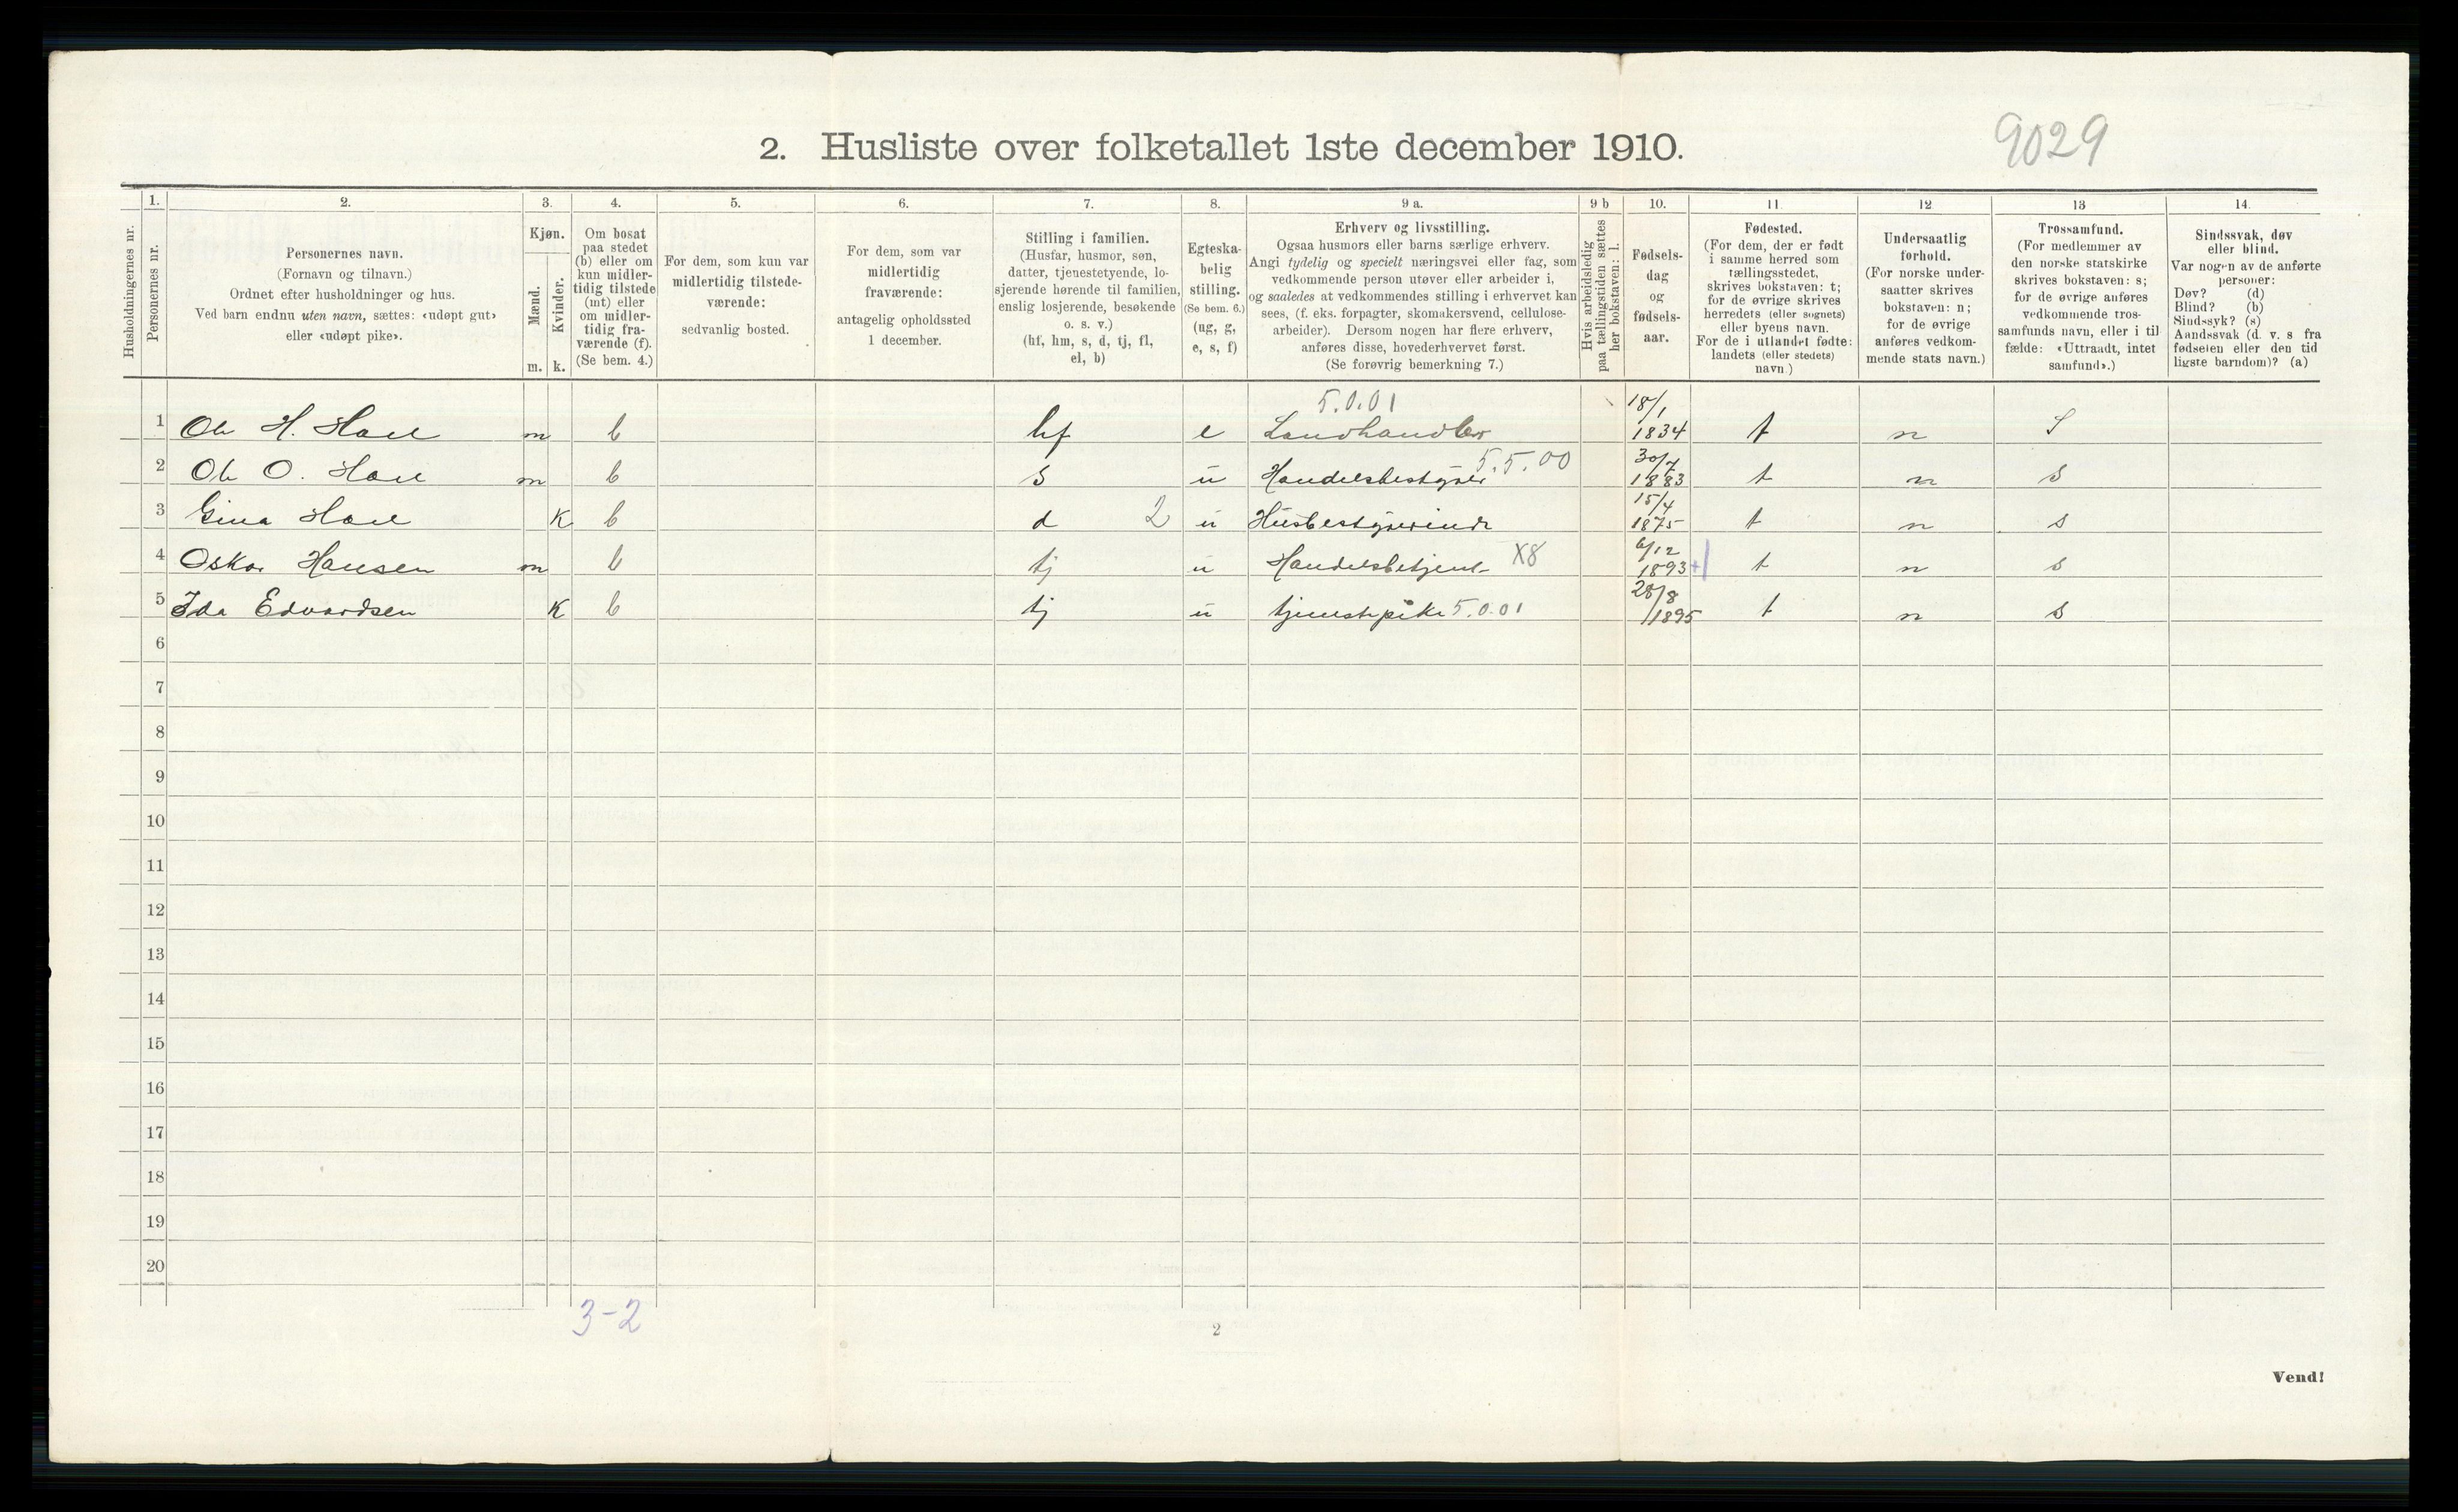 2. Husliste over folketallet 1ste december 1910.
9029
Husholdningernes nr.
1.
Personernes nr.
2.
Personernes navn.
(Fornavn og tilnavn.)
Ordnet efter husholdninger og hus.
Ved barn endnu uten navn, sættes: «udøpt gut»
eller «udøpt pike».
3.
Kjøn.
Mænd.
Kvinder.
m. k.
4.
Om bosat
paa stedet
(b) eller om
kun midler-
tidig tilstede
(mt) eller
om midler-
tidig fra-
værende (f).
(Se bem. 4.)
5.
For dem, som kun var
midlertidig tilstede-
værende:
sedvanlig bosted.
6.
For dem, som var
midlertidig
fraværende:
antagelig opholdssted
1 december.
7.
Stilling i familien.
(Husfar, husmor, søn,
datter, tjenestetyende, lo-
sjerende hørende til familien,
enslig losjerende, besøkende
o. s. v.)
(hf, hm, s, d, tj, fl,
el, b)
8.
Egteska-
belig
stilling.
(Se bem. 6.)
(ug, g,
e, s, f)
9 a.
Erhverv og livsstilling.
Ogsaa husmors eller barns særlige erhverv.
Angi tydelig og specielt næringsvei eller fag, som
vedkommende person utøver eller arbeider i,
og saaledes at vedkommendes stilling i erhvervet kan
sees, (f. eks. forpagter, skomakersvend, cellulose-
arbeider). Dersom nogen har flere erhverv,
anføres disse, hovederhvervet først.
(Se forøvrig bemerkning 7.)
9 b
Hvis arbeidsledig
paa tællingstiden sættes
her bokstaven: l.
10.
Fødsels-
dag
og
fødsels-
aar.
11.
Fødested.
(For dem, der er født
i samme herred som
tællingsstedet,
skrives bokstaven: t;
for de øvrige skrives
herredets (eller sognets)
eller byens navn.
For de i utlandet fødte:
landets (eller stedets)
navn.)
12
Undersaatlig
forhold.
(For norske under-
saatter skrives
bokstaven: n;
for de øvrige
anføres vedkom-
mende stats navn.)
13
Trossamfund.
(For medlemmer av
den norske statskirke
skrives bokstaven: s;
for de øvrige anføres
vedkommende tros-
samfunds navn, eller i til-
fælde: «Uttraadt, intet
samfund».)
14.
Sindssvak, døv
eller blind.
Var nogen av de anførte
personer:
Døv? (d)
Blind? (b)
Sindssyk? (s)
Aandssvak (d. v. s fra
fødselen eller den tid
ligste barndom)? (a)
5.0.01
1 Ole H. m b hf e Landhandler 18/1 1834 t n S
5.5.00
2 Ole O. m b s u Handelsbestyrer 30/7 1883 t n s
3 Gina K b d 2 u Husbestyrerinde 15/4 1875 t n s
4 Oskar Hansen m b tj u Handelsbetjent X8 6/12 1893 +1 t n s
5 Ida Edvardsen K b tj u tjenestepike 5.0.01 28/8 1895 t n s
6
7
8
9
10
11
12
13
14
15
16
17
18
19
20
3-2
2
Vend!